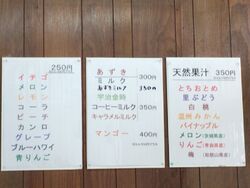 250円
イチゴ
メロン
レモン
コーラ
ピーチ
カンロ
グレープ
ブルーハワイ
青りんご
あずき
ミルク
300円
あずきミルク 350円
宇治金時
コーヒーミルク 350円
キャラメルミルク
マンゴー 400円
天然果汁 350円
とちおとめ
里ぶどう
白桃
温州みかん
パイナップル
メロン
りんご
梅